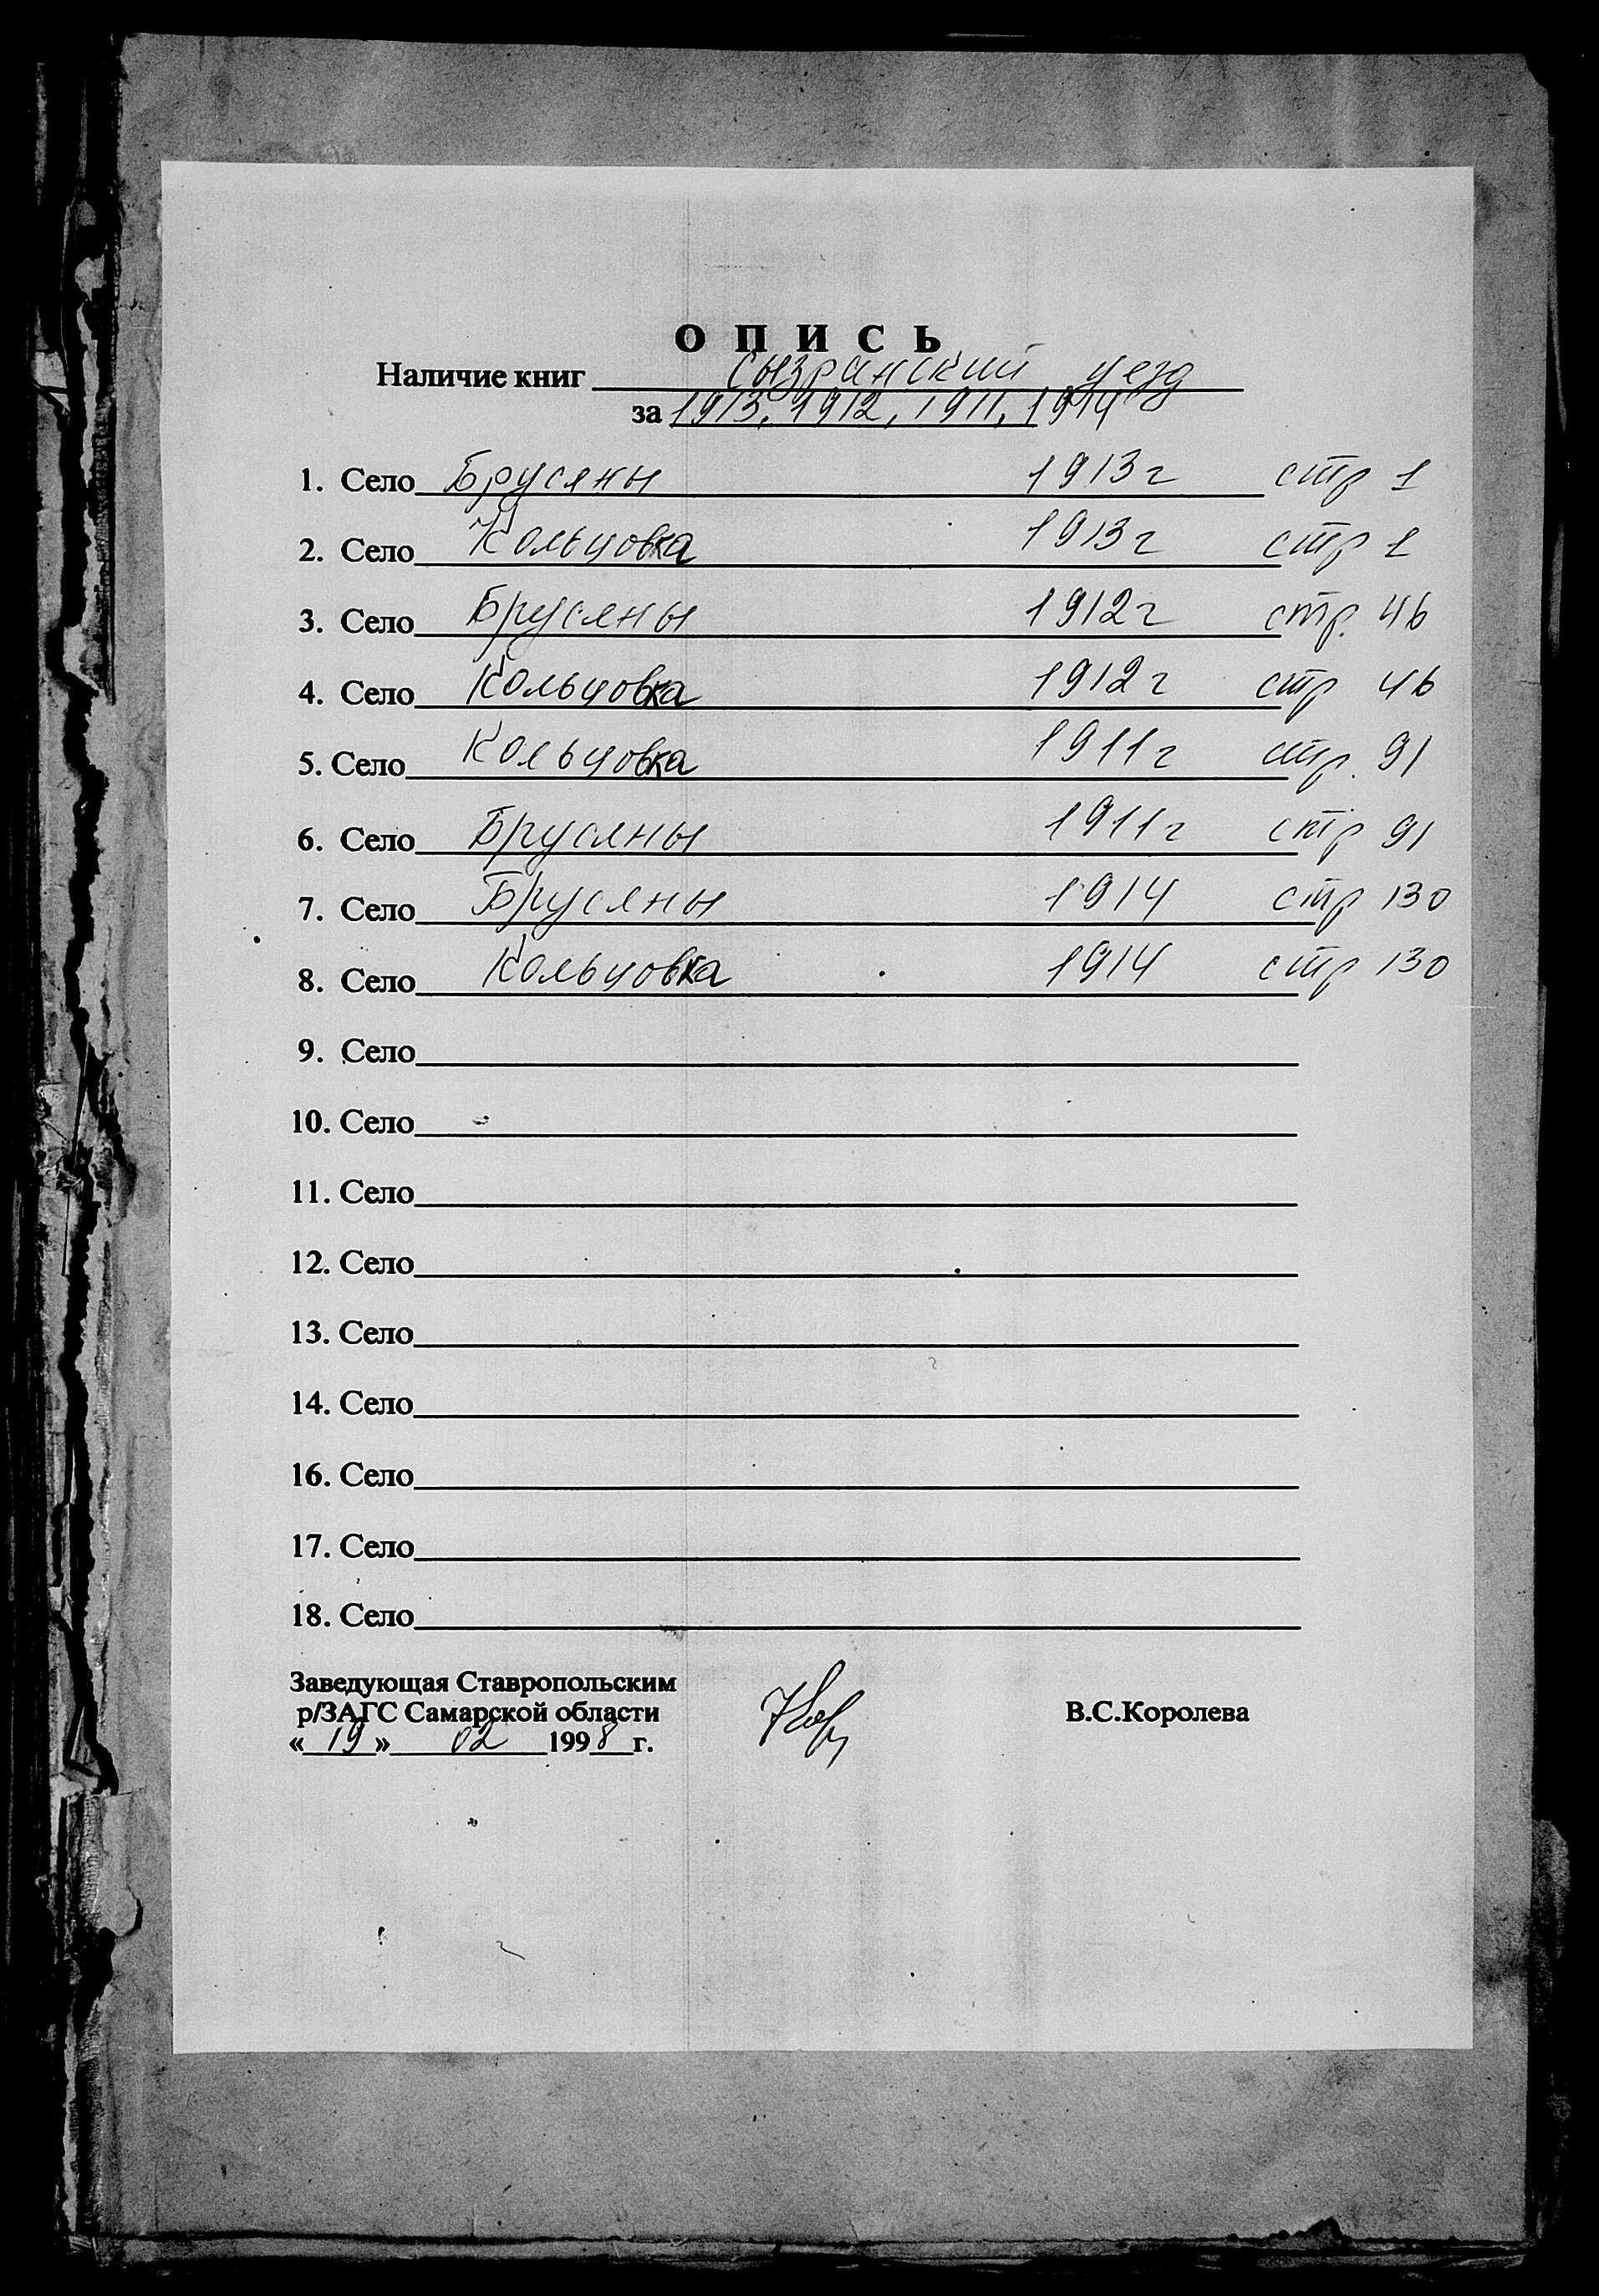 О П И С Ь
Наличие книг Сызранский уезд
за 1913, 1912, 1911, 1914
1. Село Брусяны 1913 г стр 1
2. Село Кольцовка 1913 г стр 1
3. Село Брусяны 1912 г стр. 46
4. Село Кольцовка 1912 г стр 46
5. Село Кольцовка 1911 г стр. 91
6. Село Брусяны 1911 г стр 91
7. Село Брусяны 1914 стр 130
8. Село Кольцовка 1914 стр 130
9. Село
10. Село
11. Село
12. Село
13. Село
14. Село
16. Село
17. Село
18. Село
Заведующая Ставропольским
р/ЗАГС Самарской области В.С.Королева
« 19 » 02 1998 г.